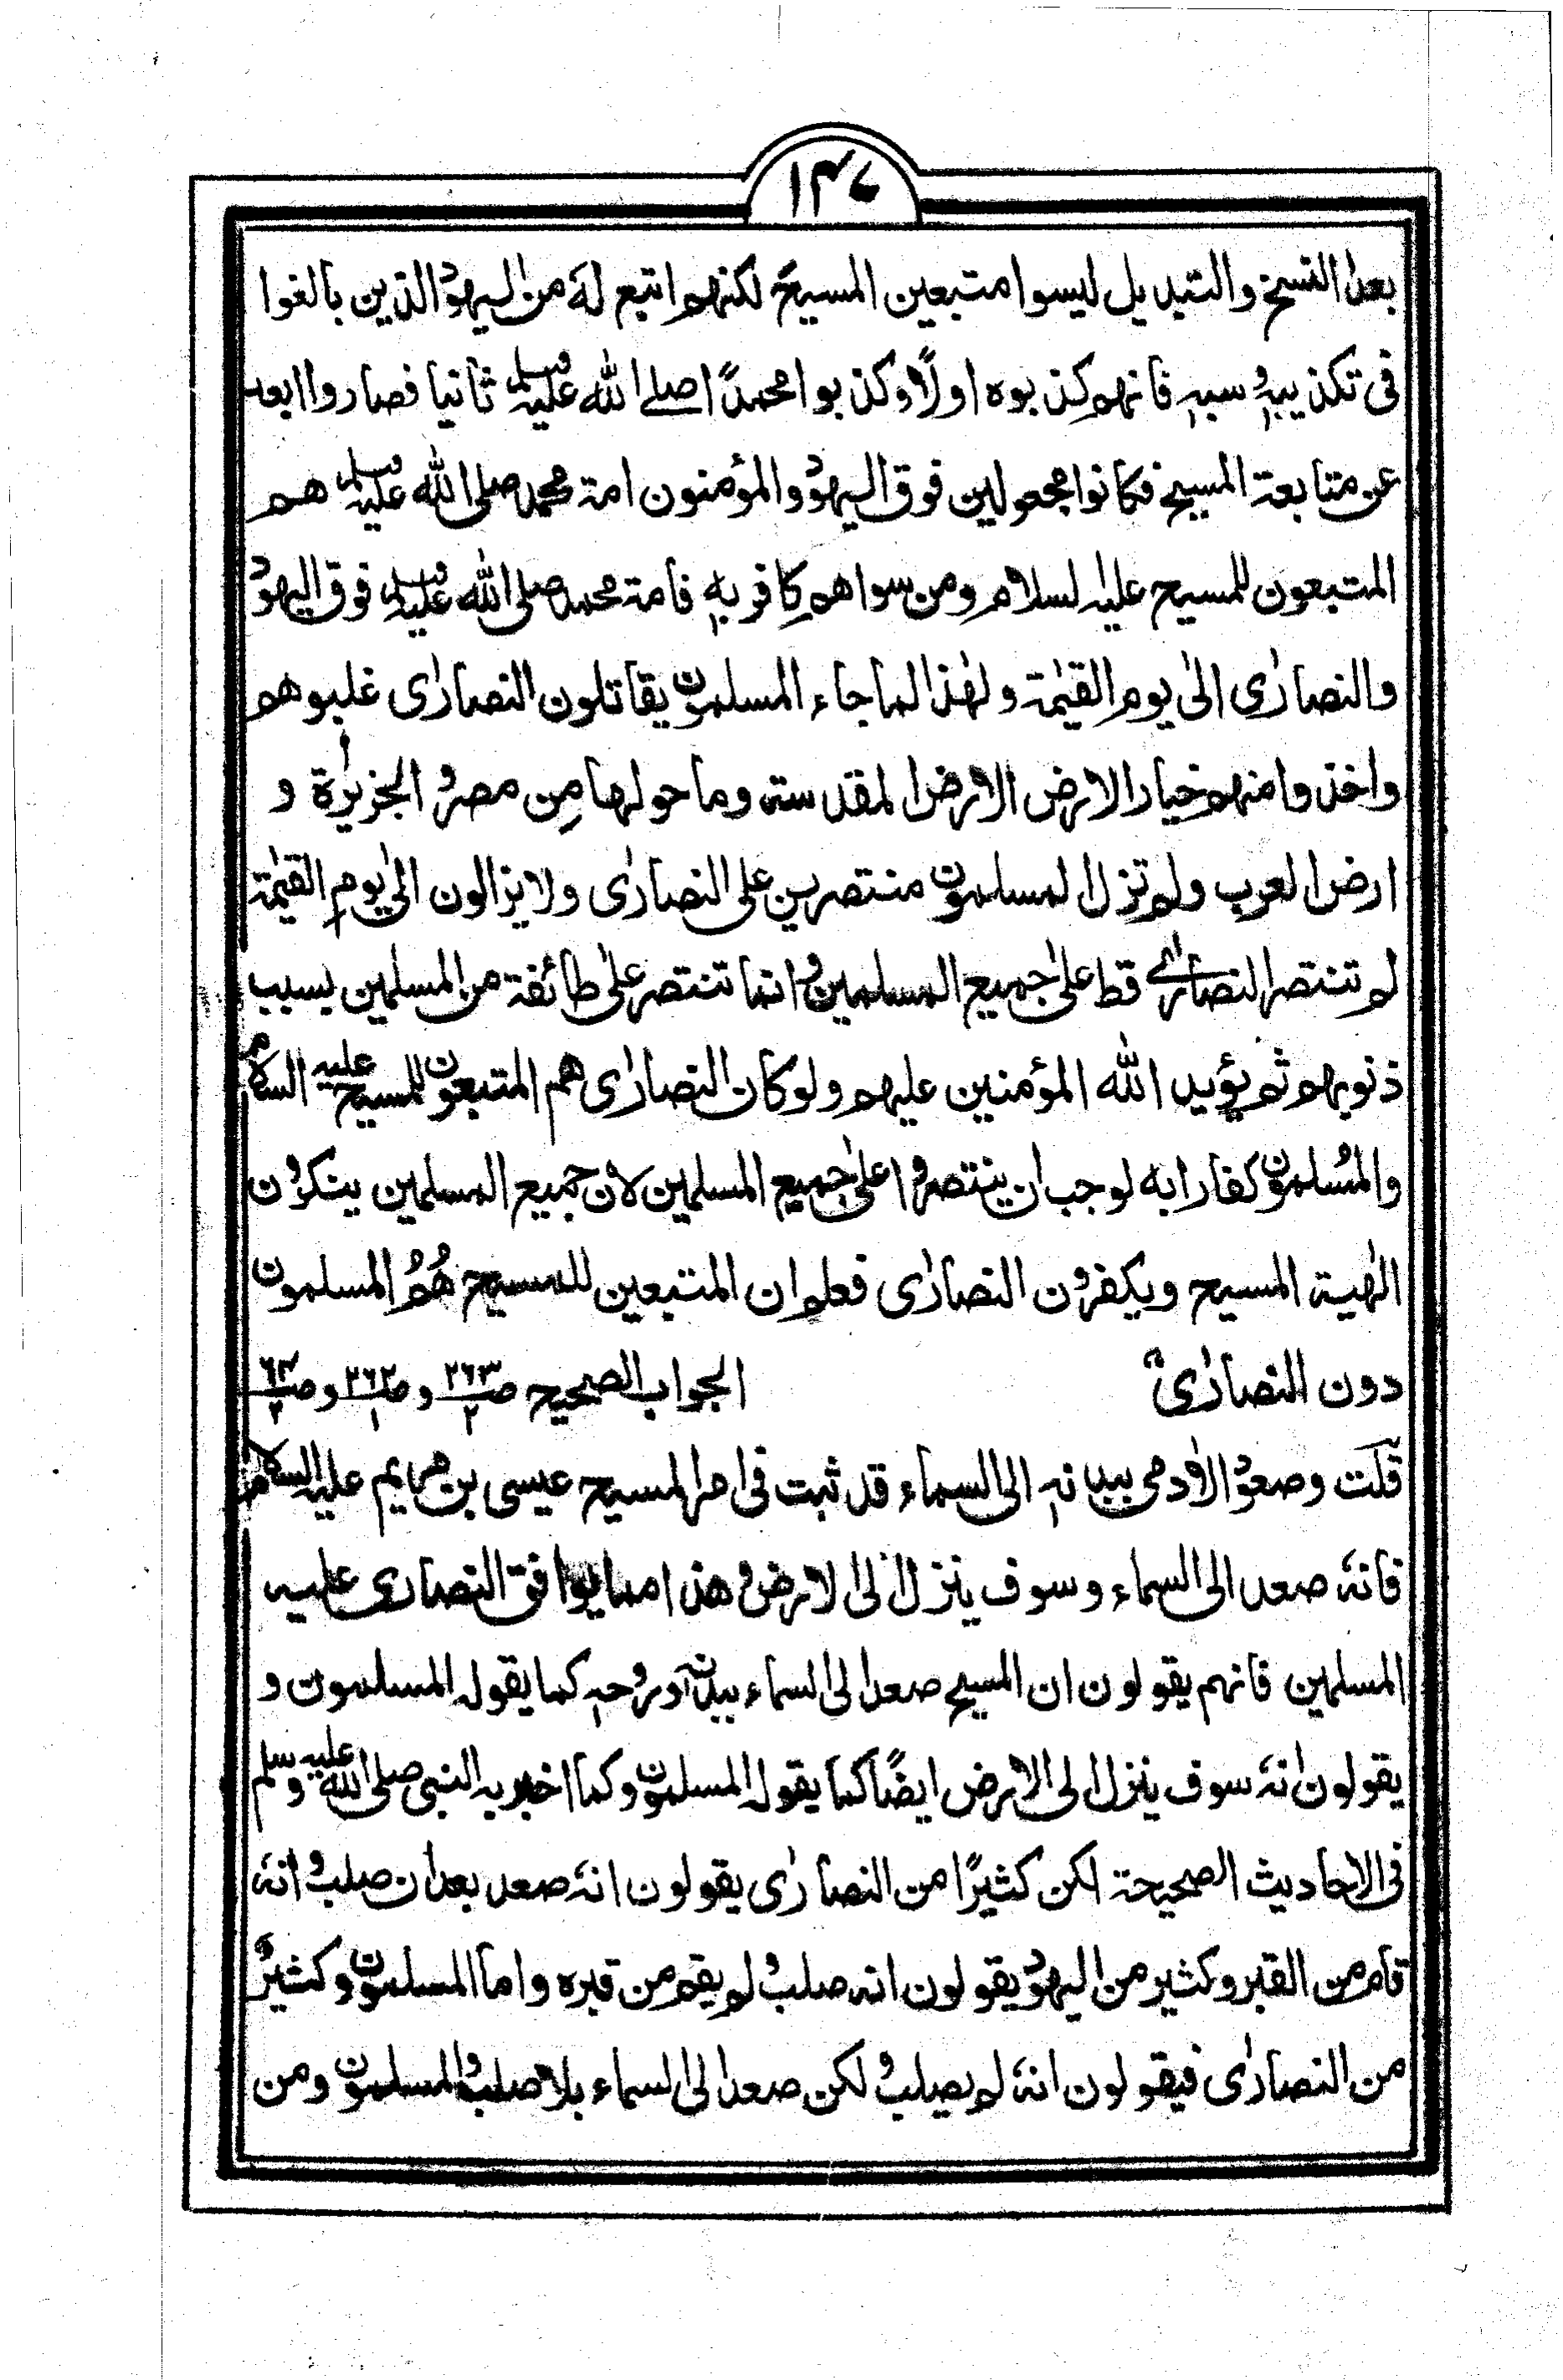 ۱۴۷
بعد النسخ والتبديل ليسوا متبعين المسيح لكنهم اتبع له من اليهود الذين بالغوا
فى تكذيبه وسبه فانهم كذبوه اولًا وكذبوا محمدًا صلے الله عليه وسلم ثانيا فصاروا ابعد
عن متابعة المسيح فكانوا مجعولين فوق اليهود والمؤمنون امة محمد صلى الله عليه وسلم هم
المتبعون للمسيح عليه السلام ومن سواهم كافر به فامة محمد صلى الله عليه وسلم فوق اليهود
والنصارٰى الىٰ يوم القيٰمة ولهٰذا لما جاء المسلمون يقاتلون النصارٰى غلبوهم
واخذوا منهم خيار الارض الارض المقدسته وما حولها مِن مصر و الجزيرٰة و
ارض العرب ولم تزل المسلمون منتصرين على النصارٰى ولا يزالون الىٰ يومِ القيٰمة
لم تنتصر النصارٰے قط علىٰ جميع المسلمين وانما تنتصر علىٰ طائفة من المسلمين بسبب
ذنوبهم ثم يؤيد الله المؤمنين عليهم ولو كان النصارٰى هم المتبعون للمسيح عليه السلام
والمُسلمون كفارا به لوجب ان ينتصروا علىٰ جميع المسلمين لان جميع المسلمين ينكرون
الٰهية المسيح ويكفرون النصارٰى فعلم ان المتبعين للمسيح هُمُ المسلمون
دون النصارٰىؓ الجواب الصحيح ص۲۶۳/۲ و ص۲۶۲/۱ و ص۶۳/۲
قلت وصعود الاٰدمى ببدنه الى السماء قد ثبت فى امر المسيح عيسى بن مريم عليه السلام
فانهٗ صعد الى السماء وسوف ينزل الى الارض وهذا مما يوافق النصارى عليه
المسلمين فانهم يقولون ان المسيح صعد الى السماء ببدنه وروحه كما يقوله المسلمون و
يقولون انهٗ سوف ينزل الى الارض ايضًا كما يقوله المسلمون وكما اخبر به النبى صلى الله عليه وسلم
فى الاحاديث الصحيحة لكن كثيرًا من النصارٰى يقولون انهٗ صعد بعد ان صلب وانهٗ
قام من القبر وكثير من اليهود يقولون انه صلب ولم يقم من قبره واما المسلمون وكثيرٌ
من النصارٰى فيقولون انهٗ لم يصلب ولكن صعد الى السماء بلا صلب والمسلمون ومن